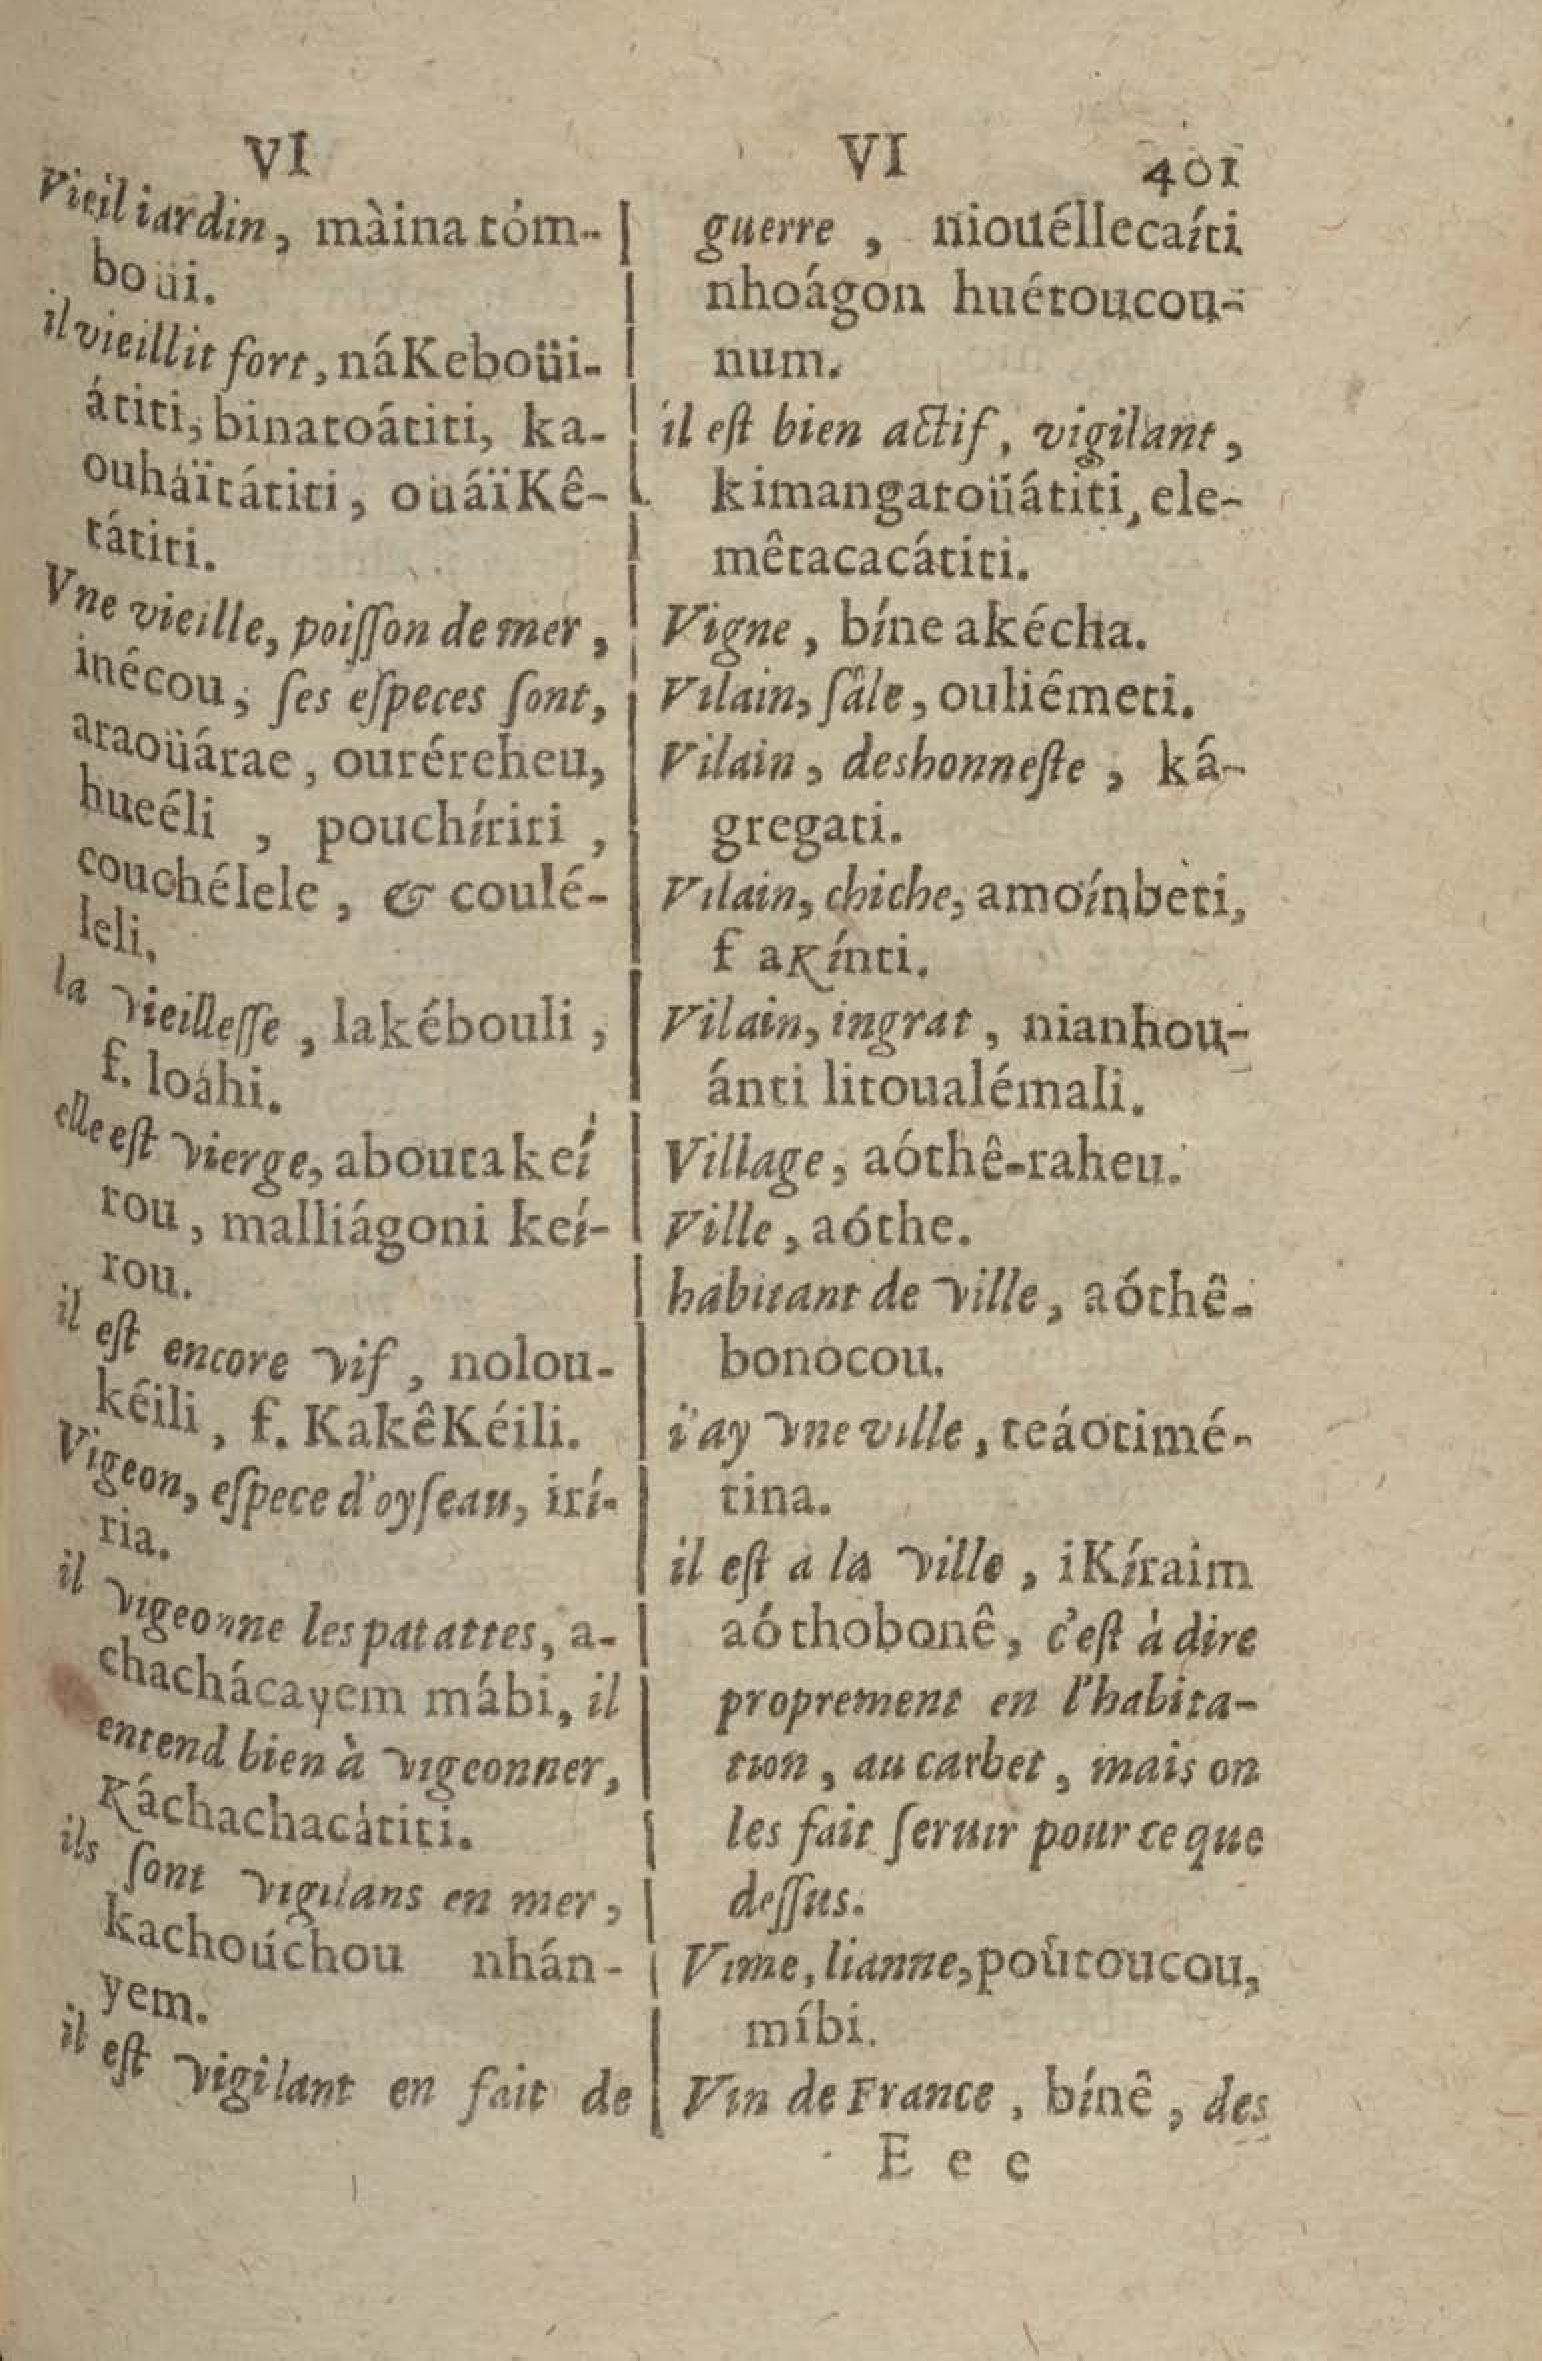 VI
Vieil iardin, màina tóm-
boüi.
il vieillit fort, náKeboüi-
átiti, binatoátiti, ka-
ouháïtátiti, ouáïKê-
tátiti.
Vne vieille, poiſſon de mer,
inécou, ſes eſpeces ſont,
araoüárae, ouréreheu,
hueéli, pouchíriri,
couchélele, & coulé-
leli.
la vieilleſſe, lakébouli,
f. loáhi.
elle eſt vierge, aboutakeí
rou, malliágoni keí-
rou.
il eſt encore vif, nolou-
kéili, f. KakêKéili.
Vigeon, eſpece d'oyſeau, irí-
ria.
il vigeonne les patattes, a-
chachácayem mábi, il
entend bien à vigeonner,
Káchachacátiti.
ils ſont vigilans en mer,
kachoúchou nhán-
yem.
il eſt vigilant en fait de
VI 401
guerre, niouéllecaíti
nhoágon huétoucou-
num.
il eſt bien actif, vigilant,
kimangatoüátiti, ele-
mêtacacátiti.
Vigne, bíne akécha.
Vilain, ſâle, ouliémeti.
Vilain, deshonneſte, kâ-
gregati.
Vilain, chiche, amoínbeti,
f akínti.
Vilain, ingrat, nianhou-
ánti litoualémali.
Village, aóthê-raheu.
Ville, aóthe.
habitant de ville, aóthê-
bonocou.
i'ay vne ville, teáotimé-
tina.
il eſt a la ville, iKíraim
aóthobonê, c'eſt à dire
proprement en l'habita-
tion, au carbet, mais on
les fait ſeruir pour ce que
deſſus.
Vime, lianne, poûtoucou,
míbi.
Vin de France, bínê, des
E e e